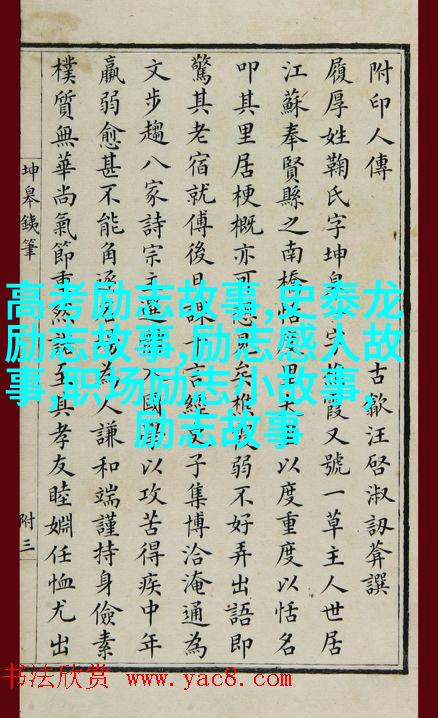 附印人傳
古歙汪啓淑訒葊譔
履厚姓鞠氏字坤皋 霞又號一草主人世居
江蘇奉賢縣之南橋 以度重度以恬名
叩其里居梗概亦可想見矣 弱不好弄出語即
驚其老宿就傅後日課 言經 子集博洽淹通為
文步趨八家詩宗 國 以攻苦得疾中年
羸弱愈甚不能角逐 場為人謙和端謹持身儉素
樸質無華尚氣節重然諾至其孝友睦婣任恤尤出
坤皋鐵筆
附三
高考励志故事,史泰龙
励志故事,励志感人故
事,职场励志小故事,
励志故事
书法欣赏 www.yac8.com